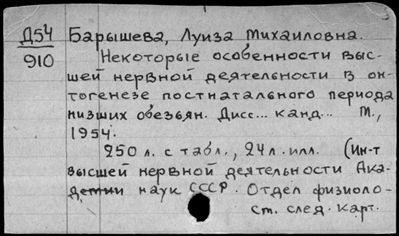 Д54 Барышева, Луиза Михаиловна.
910 Некоторые особенности выс-
шей нервной деятельности в он-
тогенезе постнатального периода
низших обезьян. Дисс... канд... М.,
1954.
250 л. с табл., 24 л. илл. (Ин-т
высшей нервной деятельности Ака-
демии наук СССР. Отдел физиоло-
См. след. карт.